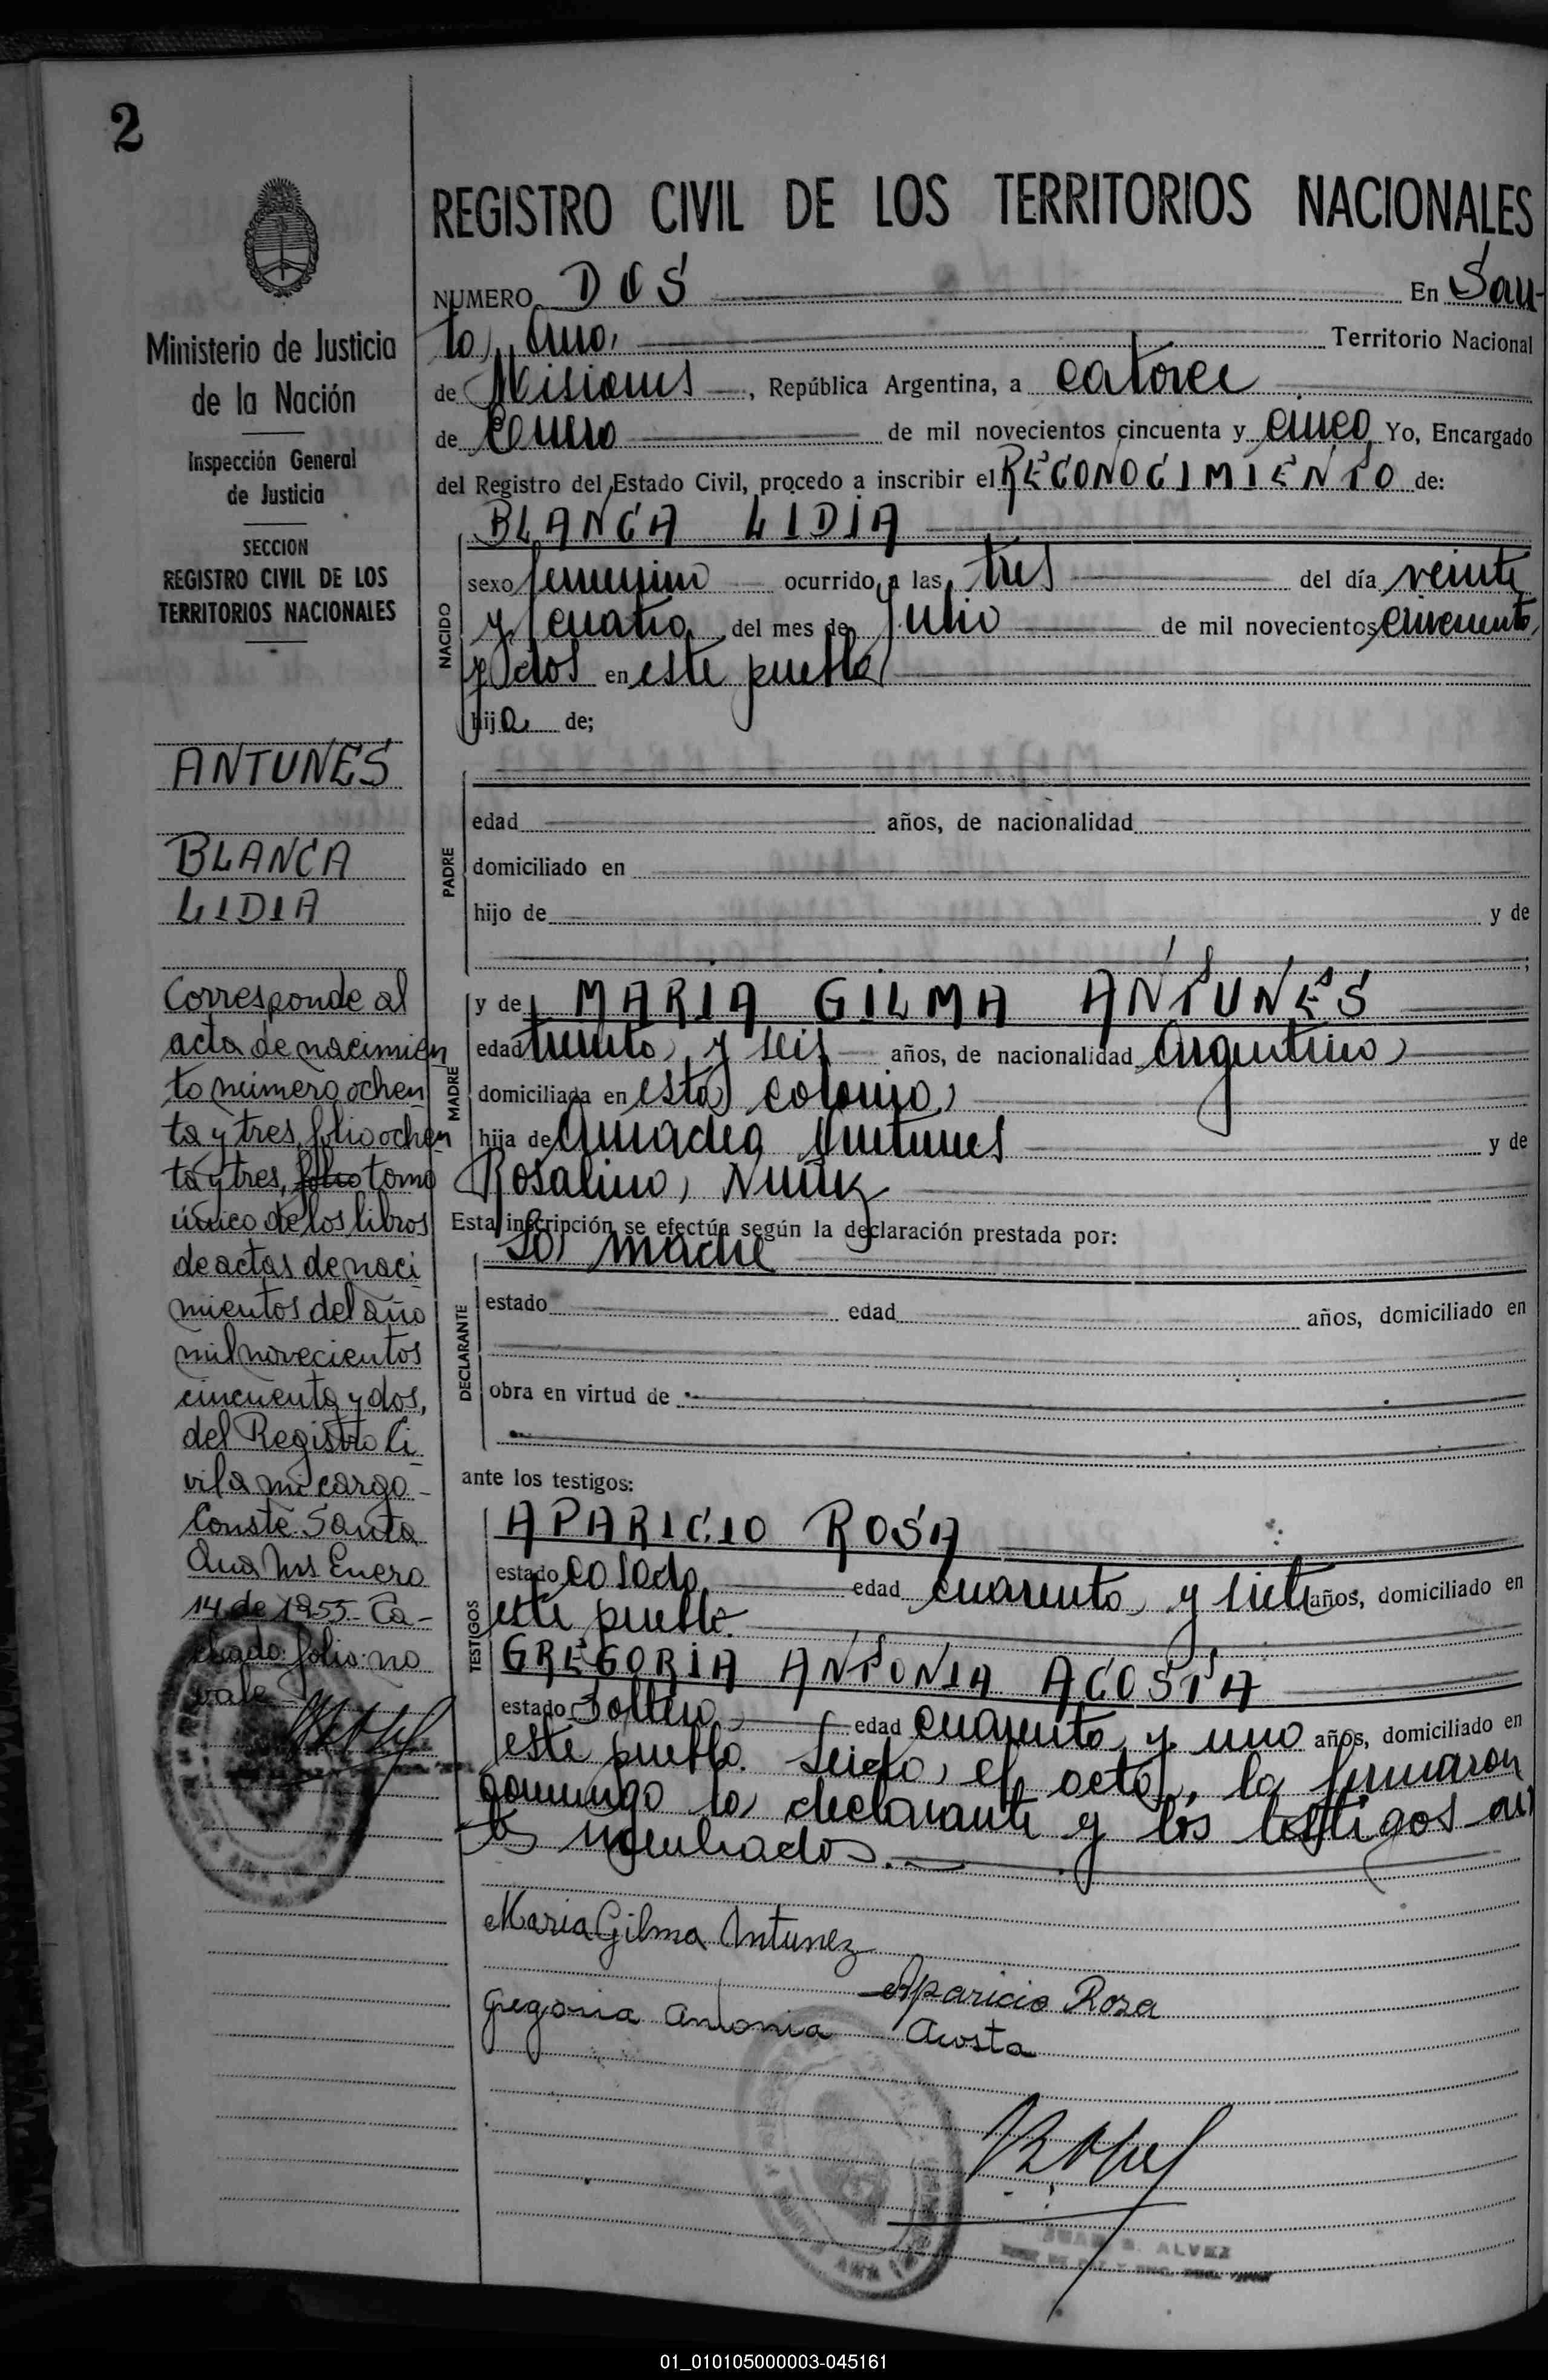 2
Ministerio de Justicia
de la Nación
Inspección General
de Justicia
SECCION
REGISTRO CIVIL DE LOS
TERRITORIOS NACIONALES
ANTUNES
BLANCA
LIDIA
Corresponde al
acta de nacimien
to número ochen
ta y tres, folio ochen
ta y tres, folio tomo
único de los libros
de actas de naci
mientos del año
mil novecientos
cincuenta y dos,
del Registro Ci-
vil a mi cargo-
Conste. Santa
Ana Mns Enero
14 de 1955- Ta-
chado: folio: no
vale
REGISTRO CIVIL DE LOS TERRITORIOS NACIONALES
NUMERO DOS En San-
ta Ana, Territorio Nacional
de Misiones, República Argentina, a catorce
de Enero de mil novecientos cincuenta y cinco Yo, Encargado
del Registro del Estado Civil, procedo a inscribir el RECONOCIMIENTO de:
BLANCA LIDIA
NACIDO
sexo femenino ocurrido a las tres del día veinte
y cuatro del mes de Julio de mil novecientos cincuenta
y dos en este pueblo
hija de;
PADRE
edad años, de nacionalidad
domiciliado en
hijo de y de
MADRE
y de MARIA GILMA ANTUNES
edad treinta y seis años, de nacionalidad Argentina
domiciliada en esta colonia
hija de Amadeo Antunes y de
Rosalina Nuñez
Esta inscripción se efectúa según la declaración prestada por:
La madre
DECLARANTE
estado edad años, domiciliado en
obra en virtud de
ante los testigos:
TESTIGOS
APARICIO ROSA
estado casado edad cuarenta y siete años, domiciliado en
este pueblo.
GREGORIA ANTONIA ACOSTA
estado Soltera edad cuarenta y uno años, domiciliado en
este pueblo. Leida el acta, la firmaron
conmigo la declarante y los testigos
Maria Gilma Antunez
Aparicio Rosa
Gregoria Antonia Acosta
JUAN B. ALVEZ
01_010105000003-045161